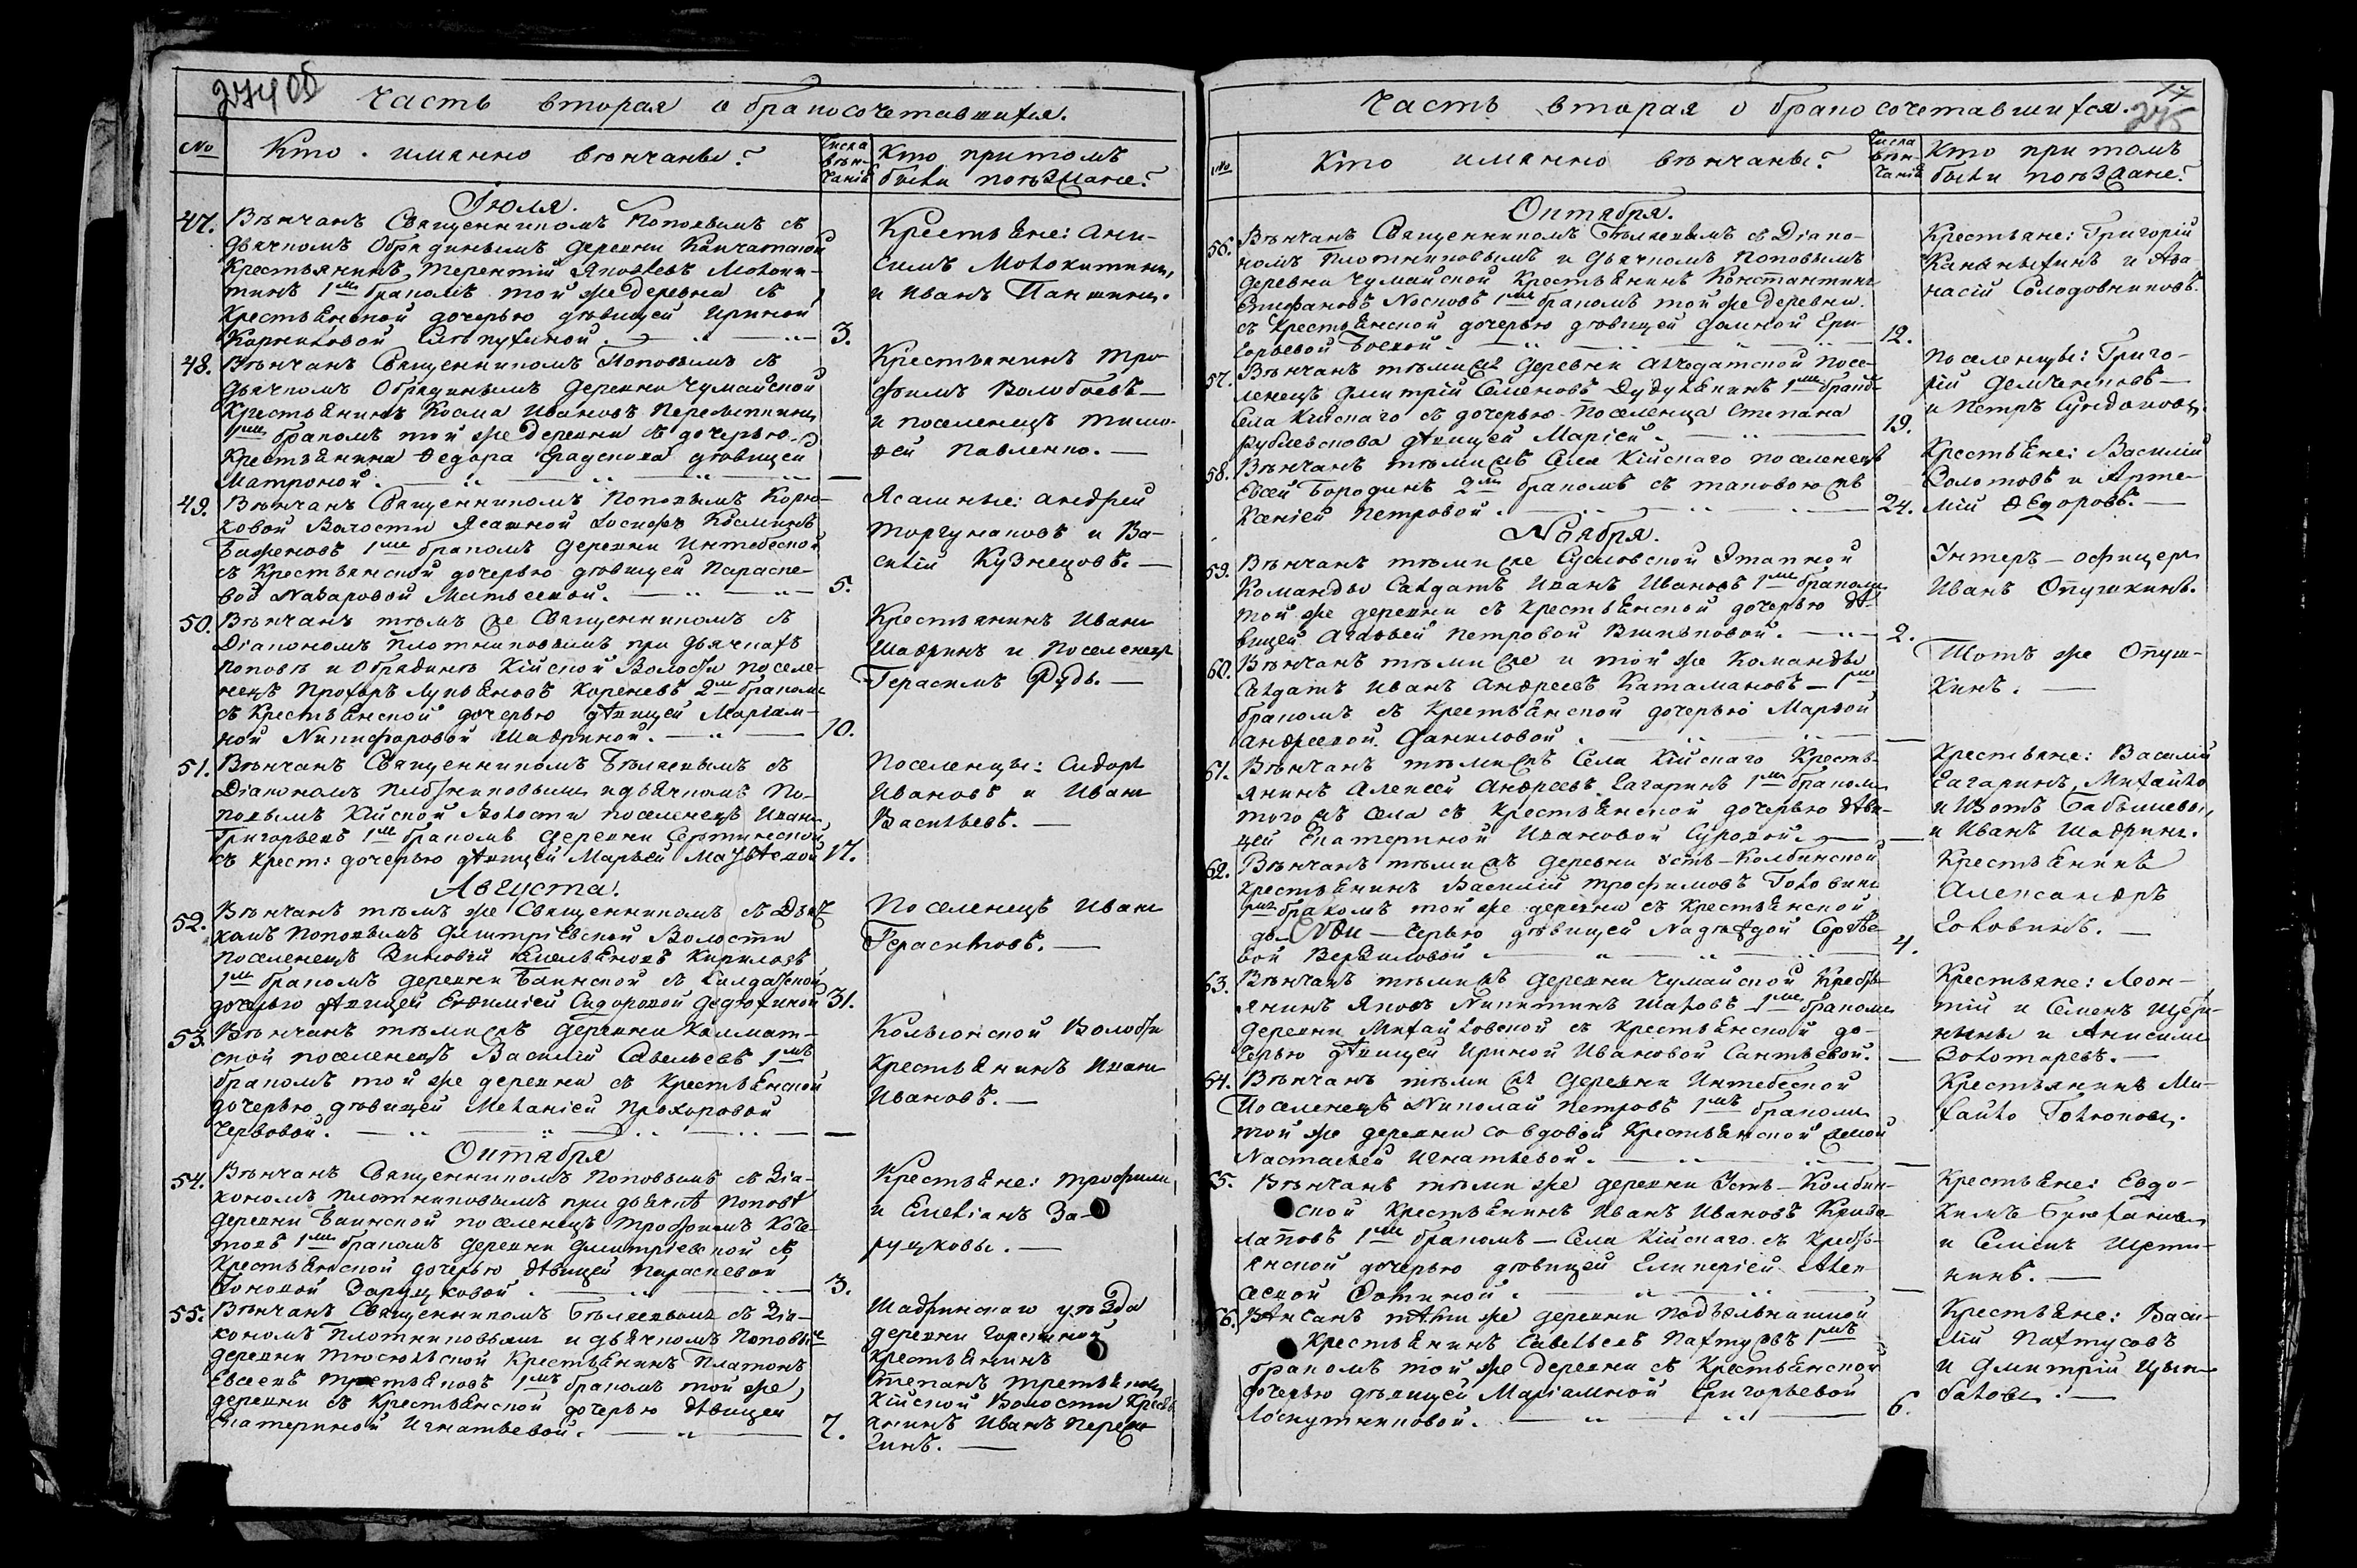 274 об
Часть вторая о бракосочетавшихся.
№
Кто именно венчаны?
Числа вѣн-чанія
Кто притомъ были поѣзжане?
Іюля.
47. Вѣнчанъ Священникомъ Поповымъ съ
дьячкомъ Обрядинымъ деревни Камчатской
Крестьянинъ, Терентій Яковлевъ Молоки-
тинъ 1мъ бракомъ той же деревни съ
Крестьянской дочерью дѣвицей Ириной
Корниловой Слѣпухиной. 3.
Крестьяне: Ани-
симъ Молокитинъ,
и Иванъ Паншинъ.
48. Вѣнчанъ Священникомъ Поповымъ съ
дьячкомъ Обрядинымъ деревни Чумайской
Крестьянинъ Косма Ивановъ
1мъ бракомъ той же деревни съ дочерью
Крестьянина Ѳедора дѣвицей
Матроной. —
Крестьянинъ Тро-
фимъ Волобоевъ —
и поселенецъ Тимо-
ѳей Павленко. —
49. Вѣнчанъ Священникомъ Поповымъ
ковой Волости Ясашной Іосифъ Косминъ
Баженовъ 1мъ бракомъ деревни Интебеской
съ Крестьянской дочерью дѣвицей Параске-
вой Назаровой Матвеевой. 5.
Ясашные: Андрей
Торгунаковъ и Ва-
силій Кузнецовъ. —
50. Вѣнчанъ тѣмъ же Священникомъ съ
Діакономъ Плотниковымъ при дьячкахъ
Поповѣ и Обрядинѣ Кійской Волости поселе-
нецъ Прохоръ Лукьяновъ Кореневъ 2мъ бракомъ
съ Крестьянской дочерью дѣвицей Маріам-
ной Никифоровой Шадриной. 10.
Крестьянинъ Иванъ
Шадринъ и Поселенецъ
Герасимъ Рудь. —
51. Вѣнчанъ Священникомъ Бѣляевымъ съ
Діакономъ Плотниковымъ и дьячкомъ По-
повымъ Кійской Волости поселенецъ Иванъ
Григорьевъ 1мъ бракомъ деревни Сертинской
съ Крест: дочерью дѣвицей Марьей 17.
Поселенцы: Сидоръ
Ивановъ и Иванъ
Васильевъ. —
Августа.
52. Вѣнчанъ тѣмъ же Священникомъ съ Дьяч-
комъ Поповымъ Дмитріевской Волости
поселенецъ Зиновій Емельяновъ Кириловъ
1мъ бракомъ деревни Баинской съ Солдатской
дочерью дѣвицей Евѳиміей Сидоровой Дедюхиной 31.
Поселенецъ Иванъ
Герасимовъ. —
53. Вѣнчанъ тѣмиже деревни
ской поселенецъ Василій Савельевъ 1мъ
бракомъ той же деревни съ Крестьянской
дочерью дѣвицей Меланіей Прохоровой
Червовой. —
Кольюнской Волости
Крестьянинъ Иванъ
Ивановъ. —
Октября
54. Вѣнчанъ Священникомъ Поповымъ съ Діа-
кономъ Плотниковымъ при дьячкѣ Поповѣ
деревни Баинской поселенецъ Трофимъ Коче-
товъ 1мъ бракомъ деревни Дмитріевской съ
Крестьянской дочерью дѣвицей Параскевой
Іоновой Заруцковой. 3.
Крестьяне: Трофимъ
и Емеліанъ За-
руцковы. —
55. Вѣнчанъ Священникомъ Бѣляевымъ съ Діа-
кономъ Плотниковымъ и дьячкомъ Поповымъ
деревни Тюсюльской Крестьянинъ Платонъ
Евсеевъ Третьяковъ 1мъ бракомъ той же
деревни съ Крестьянской дочерью дѣвицей
Екатериной Игнатьевой. 7.
Шадринскаго уѣзда
деревни
Крестьянинъ
Степанъ Третьяковъ
Кійской Волости Кресть-
янинъ Иванъ
гинъ. —
17
275
Часть вторая о бракосочетавшихся.
№
Кто именно вѣнчаны?
Числа вѣн-чанія
Кто при томъ были поѣзжане?
Октября.
56. Вѣнчанъ Священникомъ Бѣляевымъ съ Діако-
номъ Плотниковымъ и дьячкомъ Поповымъ
деревни Чумайской Крестьянинъ Константинъ
Епифановъ Носковъ 1мъ бракомъ той же деревни
съ Крестьянской дочерью дѣвицей Домной Гри-
горьевой Боевой. 12.
Крестьяне: Григорій
и Аѳа-
насій Солодовниковъ.
57. Вѣнчанъ тѣмиже деревни Алчедатской Посе-
ленецъ Дмитрій Семеновъ 1мъ бракомъ
Села Кійскаго съ дочерью Поселенца Степана
Рублевскова дѣвицей Маріей. 19.
Поселенцы: Григо-
рій Демченковъ —
и Петръ Сундаковъ.
58. Вѣнчанъ тѣмижъ Села Кійскаго поселенецъ
Евсей Бородинъ 2мъ бракомъ съ таковоюжъ
Ксеніей Петровой. 24.
Крестьяне: Василій
Солотовъ и Арте-
мій Ѳедоровъ. —
Ноября.
59. Вѣнчанъ тѣмиже Сусловской Этапной
Команды Солдатъ Иванъ Ивановъ 1мъ бракомъ
той же деревни съ Крестьянской дочерью дѣ-
вицей Агаѳьей Петровой 2.
Унтеръ-офицеръ
Иванъ Опушкинъ.
60. Вѣнчанъ тѣмиже и той же Команды
Солдатъ Иванъ Андреевъ Катамановъ — 1мъ
бракомъ съ Крестьянской дочерью Марѳой
Андреевой Даниловой. —
Тотъ же Опуш-
кинъ. —
61. Вѣнчанъ тѣмижъ Села Кійскаго Кресть-
янинъ Алексей Андреевъ Гагаринъ 1мъ бракомъ
того жъ села съ Крестьянской дочерью дѣви-
цей Екатериной Ивановой Суровой. —
Крестьяне: Василій
Гагаринъ, Михайло
и Изотъ Бабышевы,
и Иванъ Шадринъ.
62. Вѣнчанъ тѣмижъ деревни Усть-Колбинской
Крестьянинъ Василій Трофимовъ Головинъ
1мъ бракомъ той же деревни съ Крестьянской
до-черью дѣвицей Надеждой Сергѣе-
вой 4.
Крестьянинъ
Александръ
Головинъ. —
63. Вѣнчанъ тѣмижъ деревни Чумайской Кресть-
янинъ Яковъ Никитинъ Шаховъ 1мъ бракомъ
деревни Михайловской съ Крестьянской до-
черью дѣвицей Ириной Ивановой —
Крестьяне: Леон-
тій и Семенъ Щети-
нины и Анисимъ
Золотаревъ. —
64. Вѣнчанъ тѣмижъ деревни Интебеской
Поселенецъ Николай Петровъ 1мъ бракомъ
той же деревни со вдовой Крестьянской женой
Настасьей Игнатьевой. —
Крестьянинъ Ми-
хайло
65. Вѣнчанъ тѣми же деревни Усть-Колбин-
ской Крестьянинъ Иванъ Ивановъ Криво-
лаповъ 1мъ бракомъ — Села Кійскаго съ Кресть-
янской дочерью дѣвицей Гликеріей Алек-
сѣевой —
Крестьяне: Евдо-
кимъ
и Семенъ Щети-
нинъ. —
66. Вѣнчанъ тѣми же деревни Подъѣльнишной
Крестьянинъ Савельевъ Пахтусовъ 1мъ
бракомъ той же деревни съ Крестьянской
дочерью дѣвицей Маріамной Григорьевой
Лоскутниковой. 6.
Крестьяне: Васи-
лій Пахтусовъ
и Дмитрій Цын-
баловъ. —